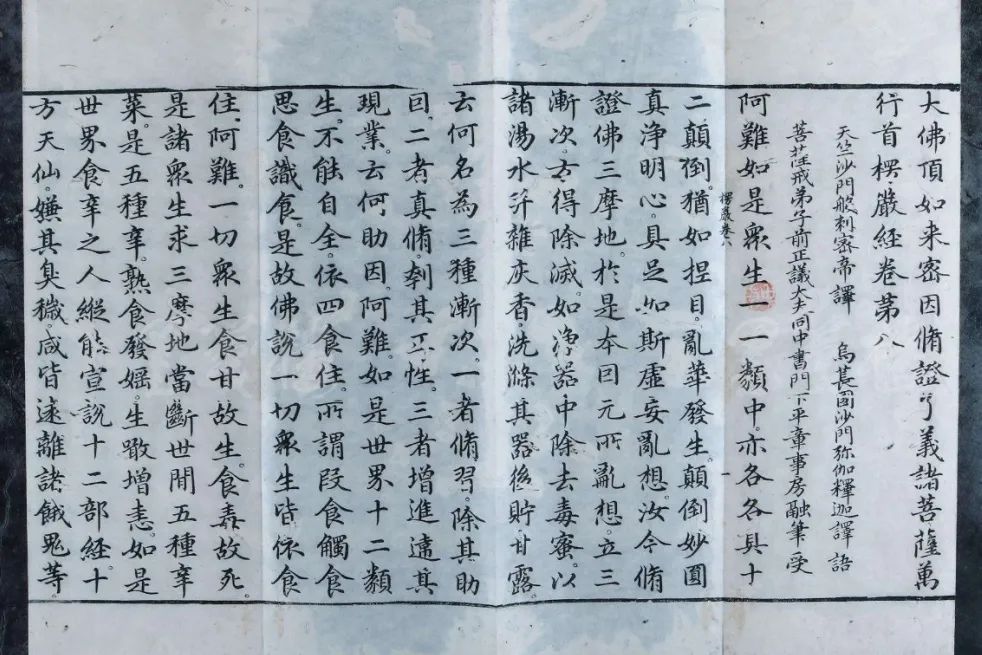 大佛頂如来密因脩證了義諸菩薩萬
行首楞嚴経卷第八
天竺沙門般刺密帝譯 烏萇國沙門弥伽釋迦譯語
菩薩戒弟子前正議大夫同中書門下平章事房融筆受
阿難如是衆生一一類中亦各各具十
二顛倒猶如捏目亂華發生顛倒妙圓
真淨明心具足如斯虛妄亂想汝今脩
證佛三摩地於是本因元所亂想立三
漸次方得除滅如淨器中除去毒蜜以
諸湯水并雜灰香洗滌其器後貯甘露
云何名為三種漸次一者脩習除其助
因二者真脩刳其正性三者增進違其
現業云何助因阿難如是世界十二類
生不能自全依四食住所謂段食觸食
思食識食是故佛說一切衆生皆依食
住阿難一切衆生食甘故生食毒故死
是諸衆生求三摩地當斷世間五種辛
菜是五種辛熟食發婬生噉增恚如是
世界食辛之人縱能宣說十二部経十
方天仙嫌其臭穢咸皆遠離諸餓鬼等